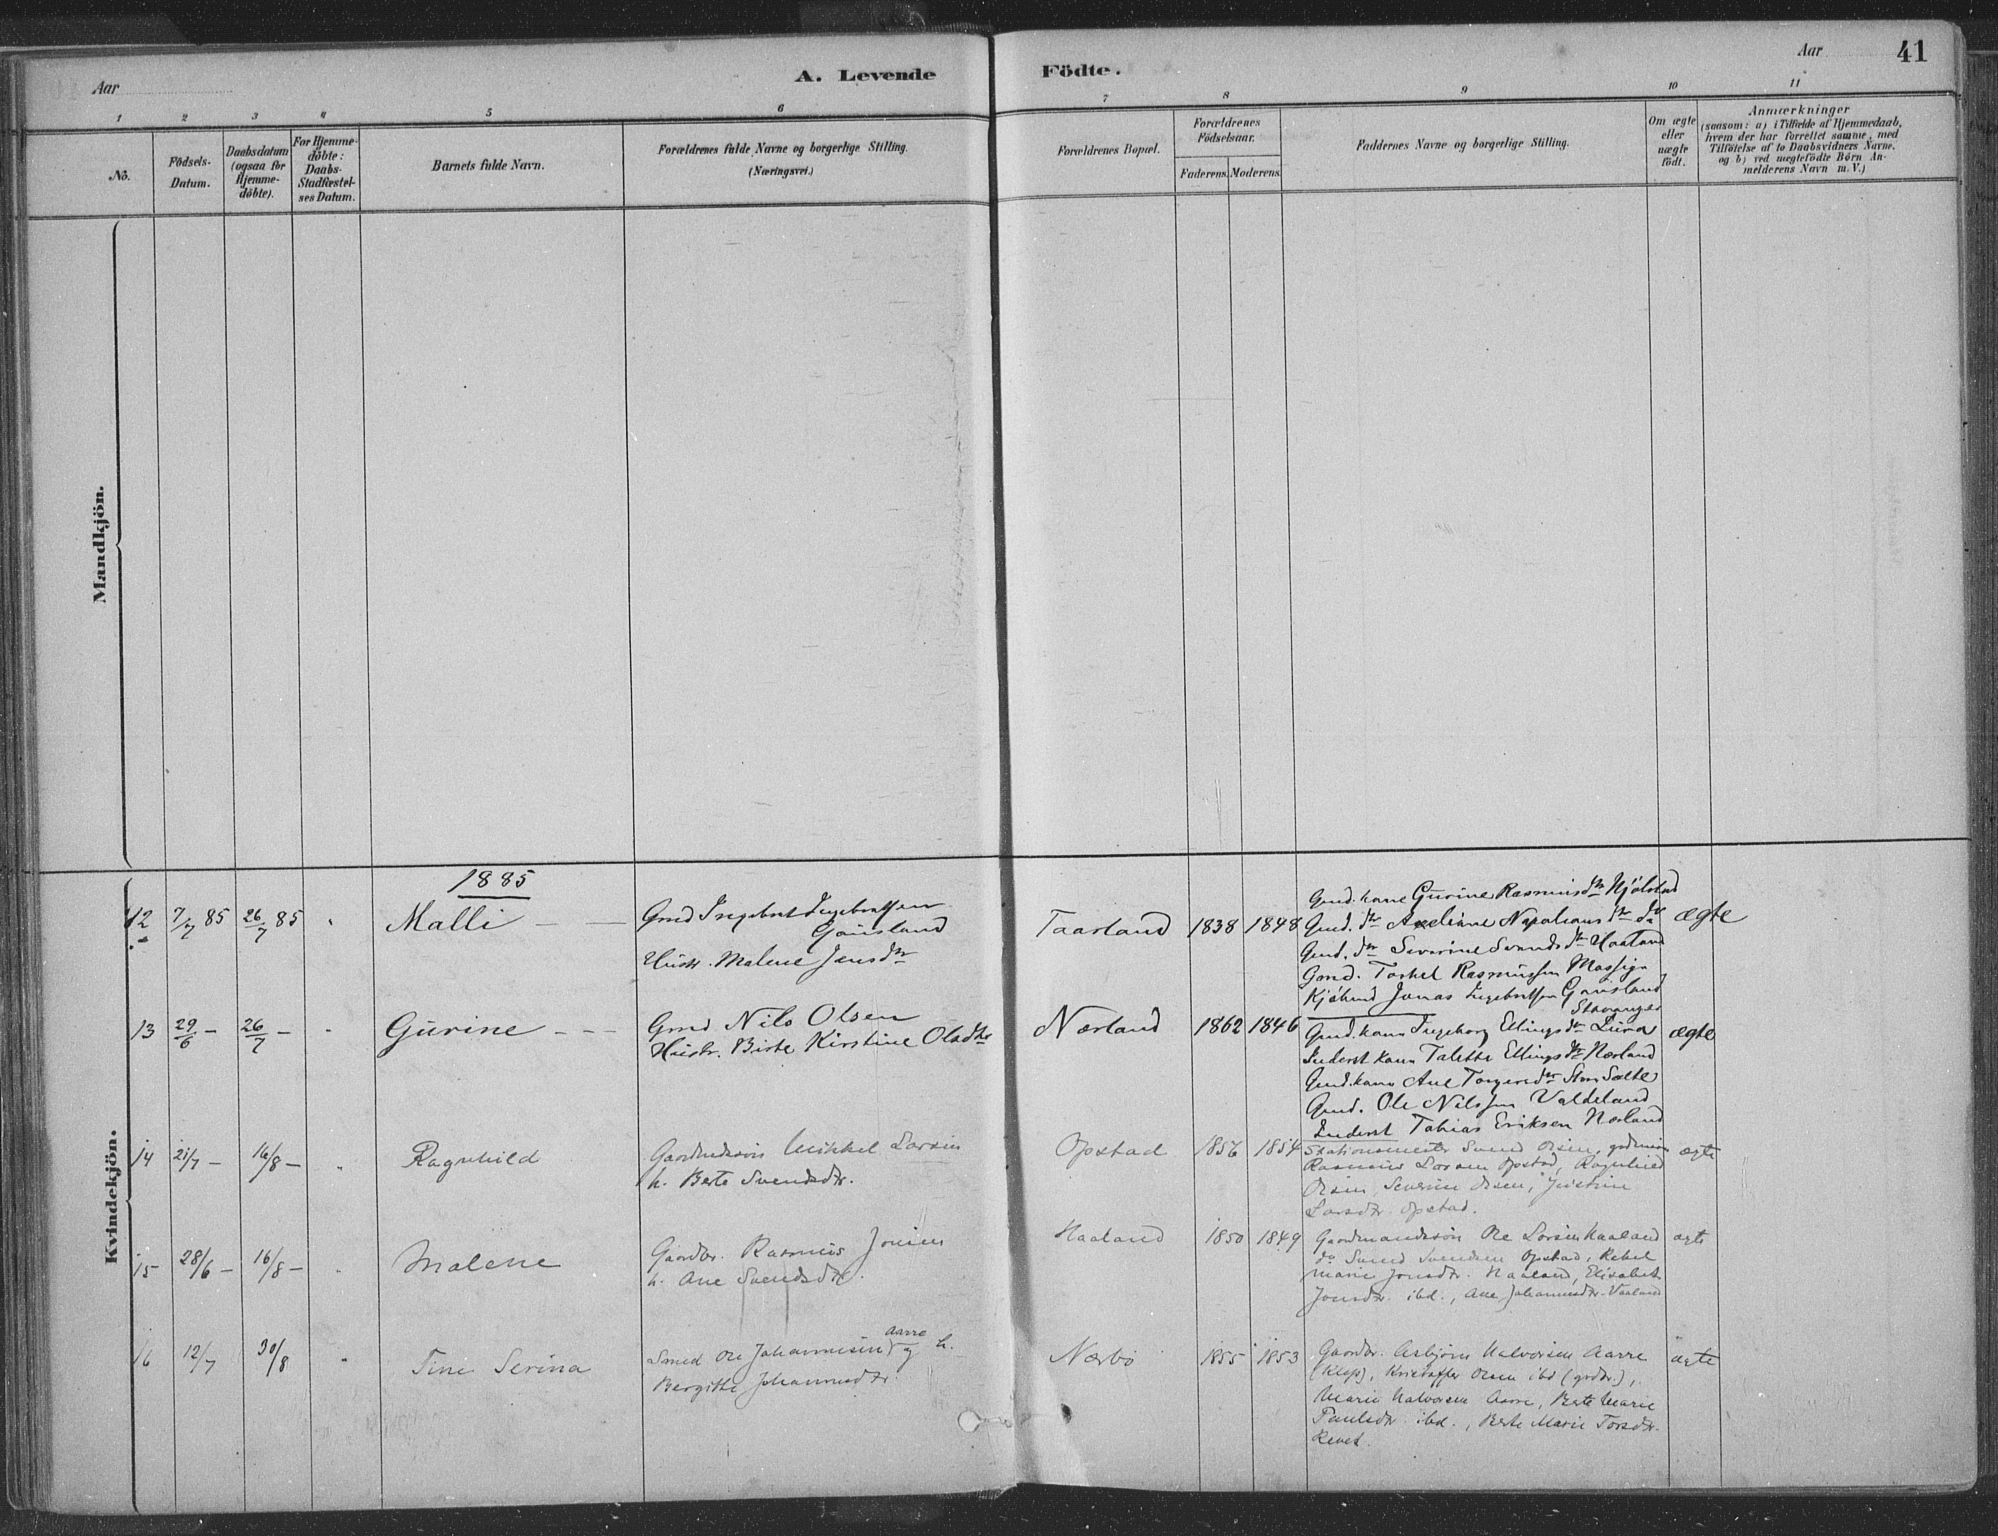 Aar
A. Levende
Födte.
Aar
41
1
2
3
4
5
6
7
8
9
10
11
No.
Födsels-
Datum.
Daabsdatum
(ogsaa for
Hjemme-
döbte).
For Hjemme-
döbte:
Daabs-
Stadfæstel-
ses Datum.
Barnets fulde Navn.
Forældrenes fulde Navne og borgerlige Stilling.
(Næringsvei.)
Forældrenes Bopæl.
Forældrenes
Födselsaar.
Faderens. Moderens.
Faddernes Navne og borgerlige Stilling.
Om ægte
eller
uægte
födt.
Anmærkninger
(saasom: a) i Tilfælde af Hjemmedaab,
hvem der har forrettet samme, med
Tilföielse af to Daabsvidners Navne,
og b) ved uægtefödte Börn An-
melderens Navn m. V.)
Mandkjön.
Kvindekjön.
1885
12
7/7 85
26/7 85
"
Malli —
Gmd Ingebret Ingebretsen
Gausland
Hustr. Malene Jensdtr
Taarland
1838
1848
Gmd. kone Gurine Rasmusdtr Njølstad
Gmd. dtr Axeliane Napoleonsdtr do
Gmd. dtr Severine Svendsdtr Haaland
Gmd. Torkel Rasmussen Mossige
Kjøbmd Jonas Ingebretsen Gausland
Stavanger
ægte
13
29/6 —
26/7 —
"
Gurine — —
Gmd Nils Olsen
Hustr. Birte Kirstine Olsdtr
Nærland
1862
1846
Gmd. kone Ingeborg Ellingsdtr Lura
Inderst kone Talette Ellingsdtr Nærland
Gmd. kone Ane Torgersdtr Stor Salte
Gmd. Ole Nilssen Valdeland
Inderst Tobias Eriksen Nærland
ægte
14
21/7 —
16/8 —
"
Ragnhild
Gaardmdssøn Mikkel Larsen
h. Berte Svendsdtr.
Opstad
1856
1854
Stationsmester Svend Olsen,
Rasmus Larsen Opstad, Ragnhild
Olsen, Severine Olsen, Justine
Larsdtr. Opstad.
ægte
15
28/6 —
16/8 —
"
Malene
Gaardbr. Rasmus Jonsen
h. Ane Svendsdtr.
Haaland
1850
1849
Gaardmandssøn Ole Larsen Haaland
do Svend Svendsen Opstad, Rebek
Marie Jonsdtr. Haaland, Elisabet
Jonsdtr. ibd., Ane Johannesdtr.
ægte
16
12/7
30/8
"
Tine Serina
Smed Ole Johannesen Aarre og h.
Bergitte Johannesdtr.
Nærbö
1855
1853
Gaardbr. Asbjörn Halvorsen Aarre
(Klep), Kristoffer Olsen ibd (grdbr.),
Marie Halvorsen Aarre, Berte Marie
Paulsdtr. ibd., Berte Marie Torsdtr.
Revet.
ægte